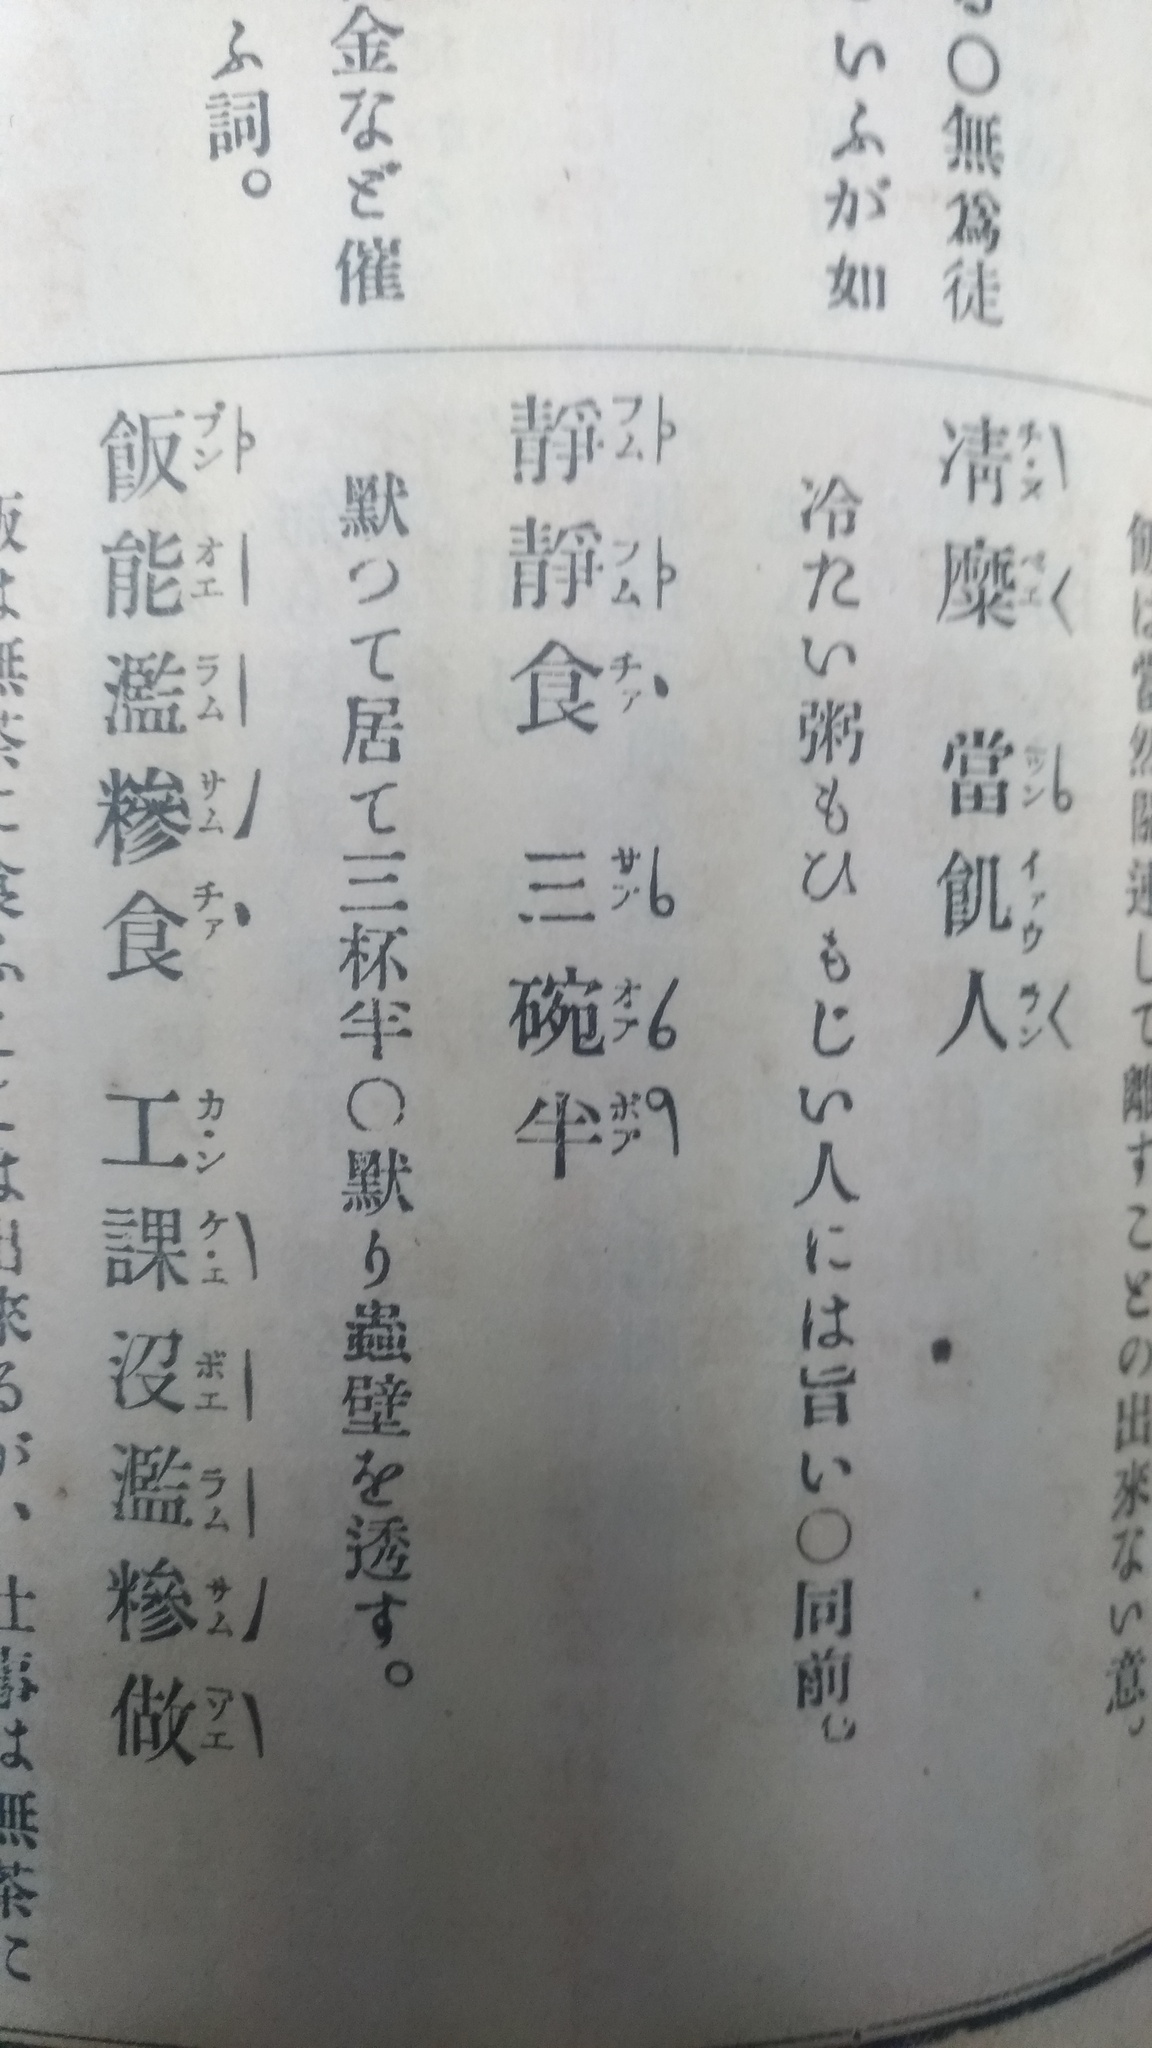 〇無爲徒
いふが如
金など催
ふ詞。
飯は當然關連して離すことの出來ない意。
凊糜 當飢人
冷たい粥もひもじい人には旨い〇同前。
靜靜食 三碗半
默つて居て三杯半〇默り蟲壁を透す。
飯能濫糝食 工課沒濫糝做
飯は無茶に食ふことは出來るが、仕事は無茶に